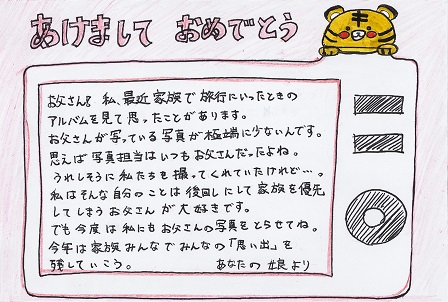 あけまして おめでとう
お父さん。私、最近家族で旅行にいったときの
アルバムを見て思ったことがあります。
お父さんが写っている写真が極端に少ないんです。
思えば写真担当はいつもお父さんだったよね。
うれしそうに私たちを撮ってくれていたけれど…。
私はそんな自分のことは後回しにして家族を優先
してしまうお父さんが大好きです。
でも今度は私にもお父さんの写真をとらせてね。
今年は家族みんなでみんなの「思い出」を
残していこう。 あなたの娘より